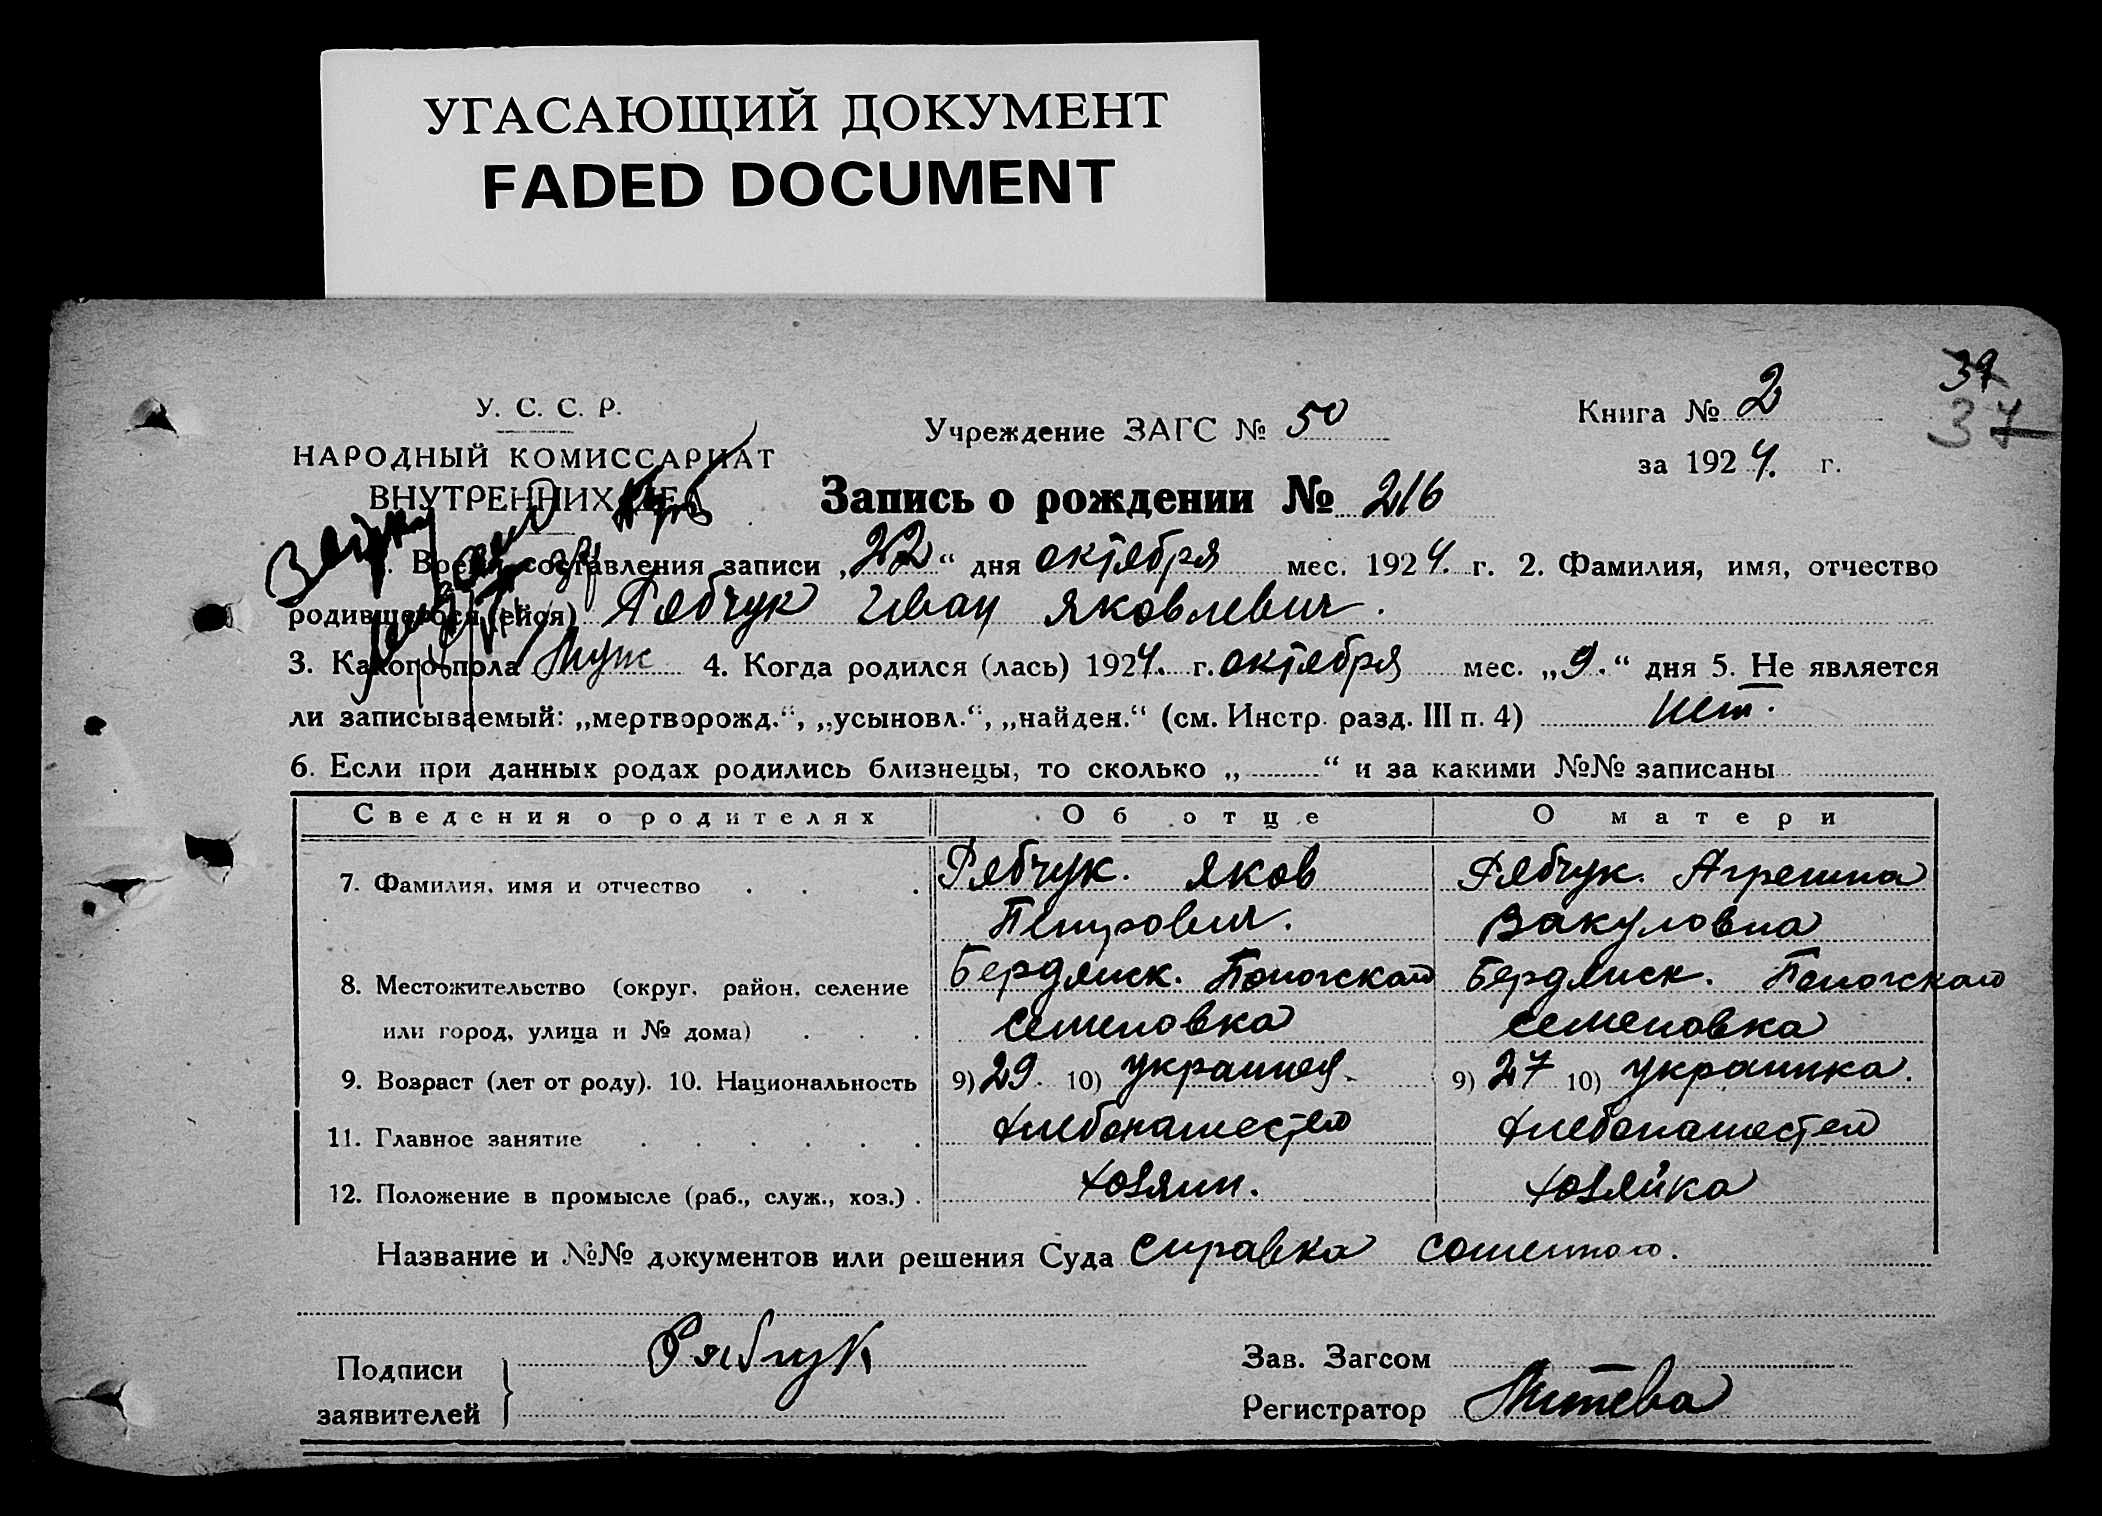 УГАСАЮЩИЙ ДОКУМЕНТ
FADED DOCUMENT
39
37
У. С. С. Р.
НАРОДНЫЙ КОМИССАРИАТ
ВНУТРЕННИХ ДЕЛ
Учреждение ЗАГС № 50
Книга № 2
за 1924. г.
Запись о рождении № 216
1. Время составления записи „22“ дня октября мес. 1924. г. 2. Фамилия, имя, отчество
родившегося (ейся) Рябчук Иван Яковлевич.
3. Какого пола муж 4. Когда родился (лась) 1924. г. октября мес. „9.“ дня 5. Не является
ли записываемый: „мертворожд.“, „усыновл.“, „найден.“ (см. Инстр. разд. III п. 4) нет.
6. Если при данных родах родились близнецы, то сколько „ “ и за какими №№ записаны
Сведения о родителях Об отце О матери
7. Фамилия, имя и отчество Рябчук. Яков Рябчук. Агрепина
Петрович. Вакуловна
8. Местожительство (округ, район, селение Бердянск. Бердянск.
или город, улица и № дома) Семеновка Семеновка
9. Возраст (лет от роду). 10. Национальность 9) 29. 10) украинец. 9) 27 10) украинка.
11. Главное занятие хлебопашество хлебопашество
12. Положение в промысле (раб., служ., хоз.) хозяин. хозяйка
Название и №№ документов или решения Суда справка
Подписи
заявителей
Рябчук
Зав. Загсом
Регистратор